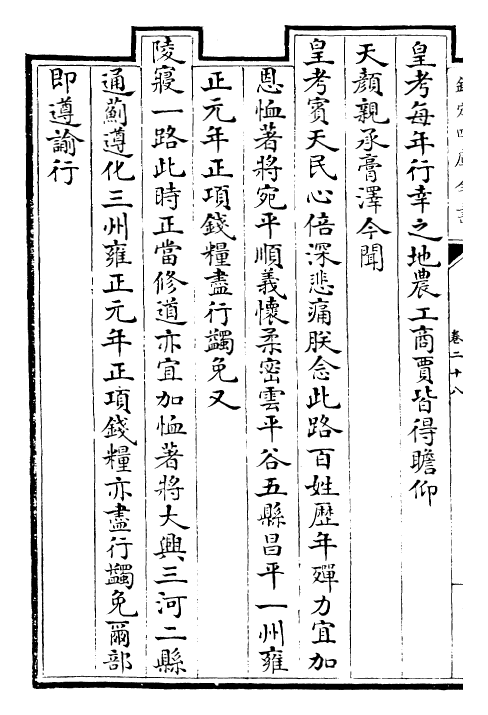 皇考每年行幸之地農工商賈皆得瞻仰
天顏親承膏澤今聞
皇考賓天民心倍深悲痛朕念此路百姓歷年殫力宜加
恩恤著將宛平順義懷柔密雲平谷五縣昌平一州雍
正元年正項錢糧盡行蠲免又
陵寢一路此時正當修道亦宜加恤著將大興三河二縣
通薊遵化三州雍正元年正項錢糧亦盡行蠲免爾部
即遵諭行
卷二十八